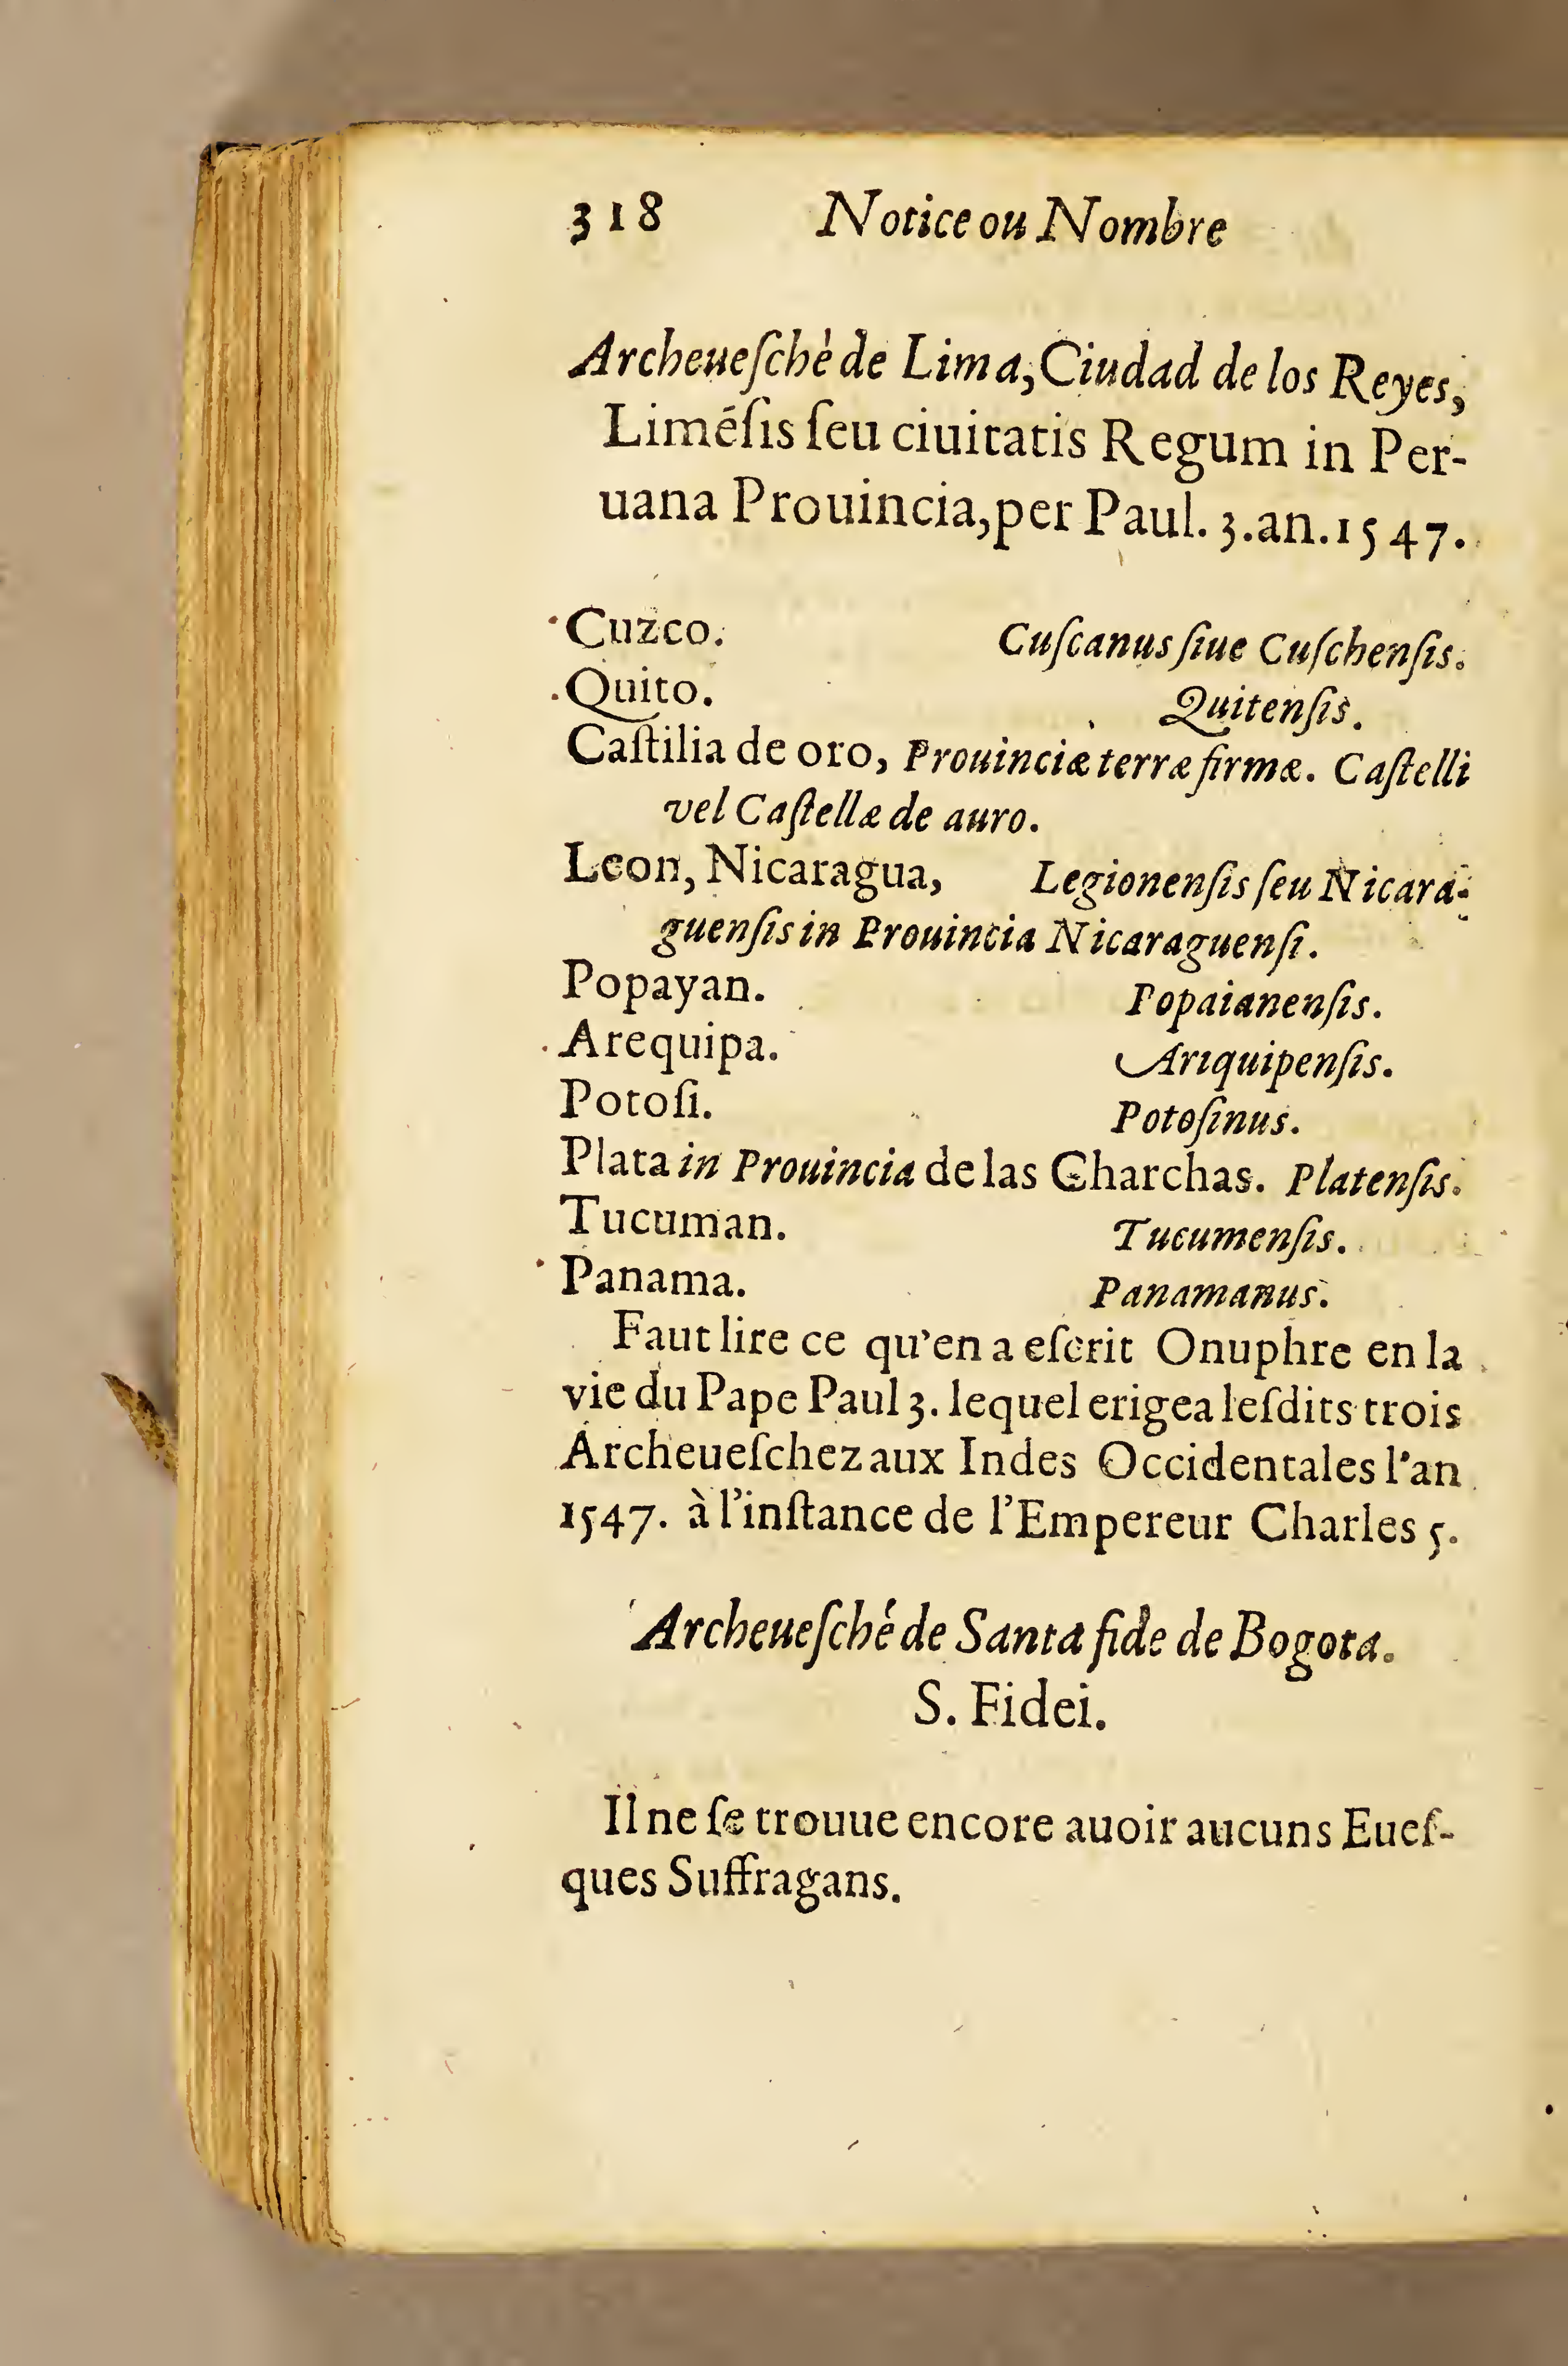 318 Notice ou Nombre
Archeueſchè de Lima, Ciudad de los Reyes,
Limēſis ſeu ciuitatis Regum in Per-
uana Prouincia, per Paul. 3. an. 1547.
Cuzco. Cuſcanus ſiue Cuſchenſis.
Quito. Quitenſis.
Caſtilia de oro, Prouinciæ terræ firmæ. Caſtelli
vel Caſtellæ de auro.
Leon, Nicaragua, Legionenſis ſeu Nicara-
guenſis in Prouincia Nicaraguenſi.
Popayan. Popaianenſis.
Arequipa. Ariquipenſis.
Potoſi. Potoſinus.
Plata in Prouincia de las Charchas. Platenſis.
Tucuman. Tucumenſis.
Panama. Panamanus.
Faut lire ce qu'en a eſcrit Onuphre en la
vie du Pape Paul 3. lequel erigea leſdits trois
Archeueſchez aux Indes Occidentales l'an
1547. à l'inſtance de l'Empereur Charles 5.
Archeueſché de Santa fide de Bogota.
S. Fidei.
Il ne ſe trouue encore auoir aucuns Eueſ-
ques Suffragans.